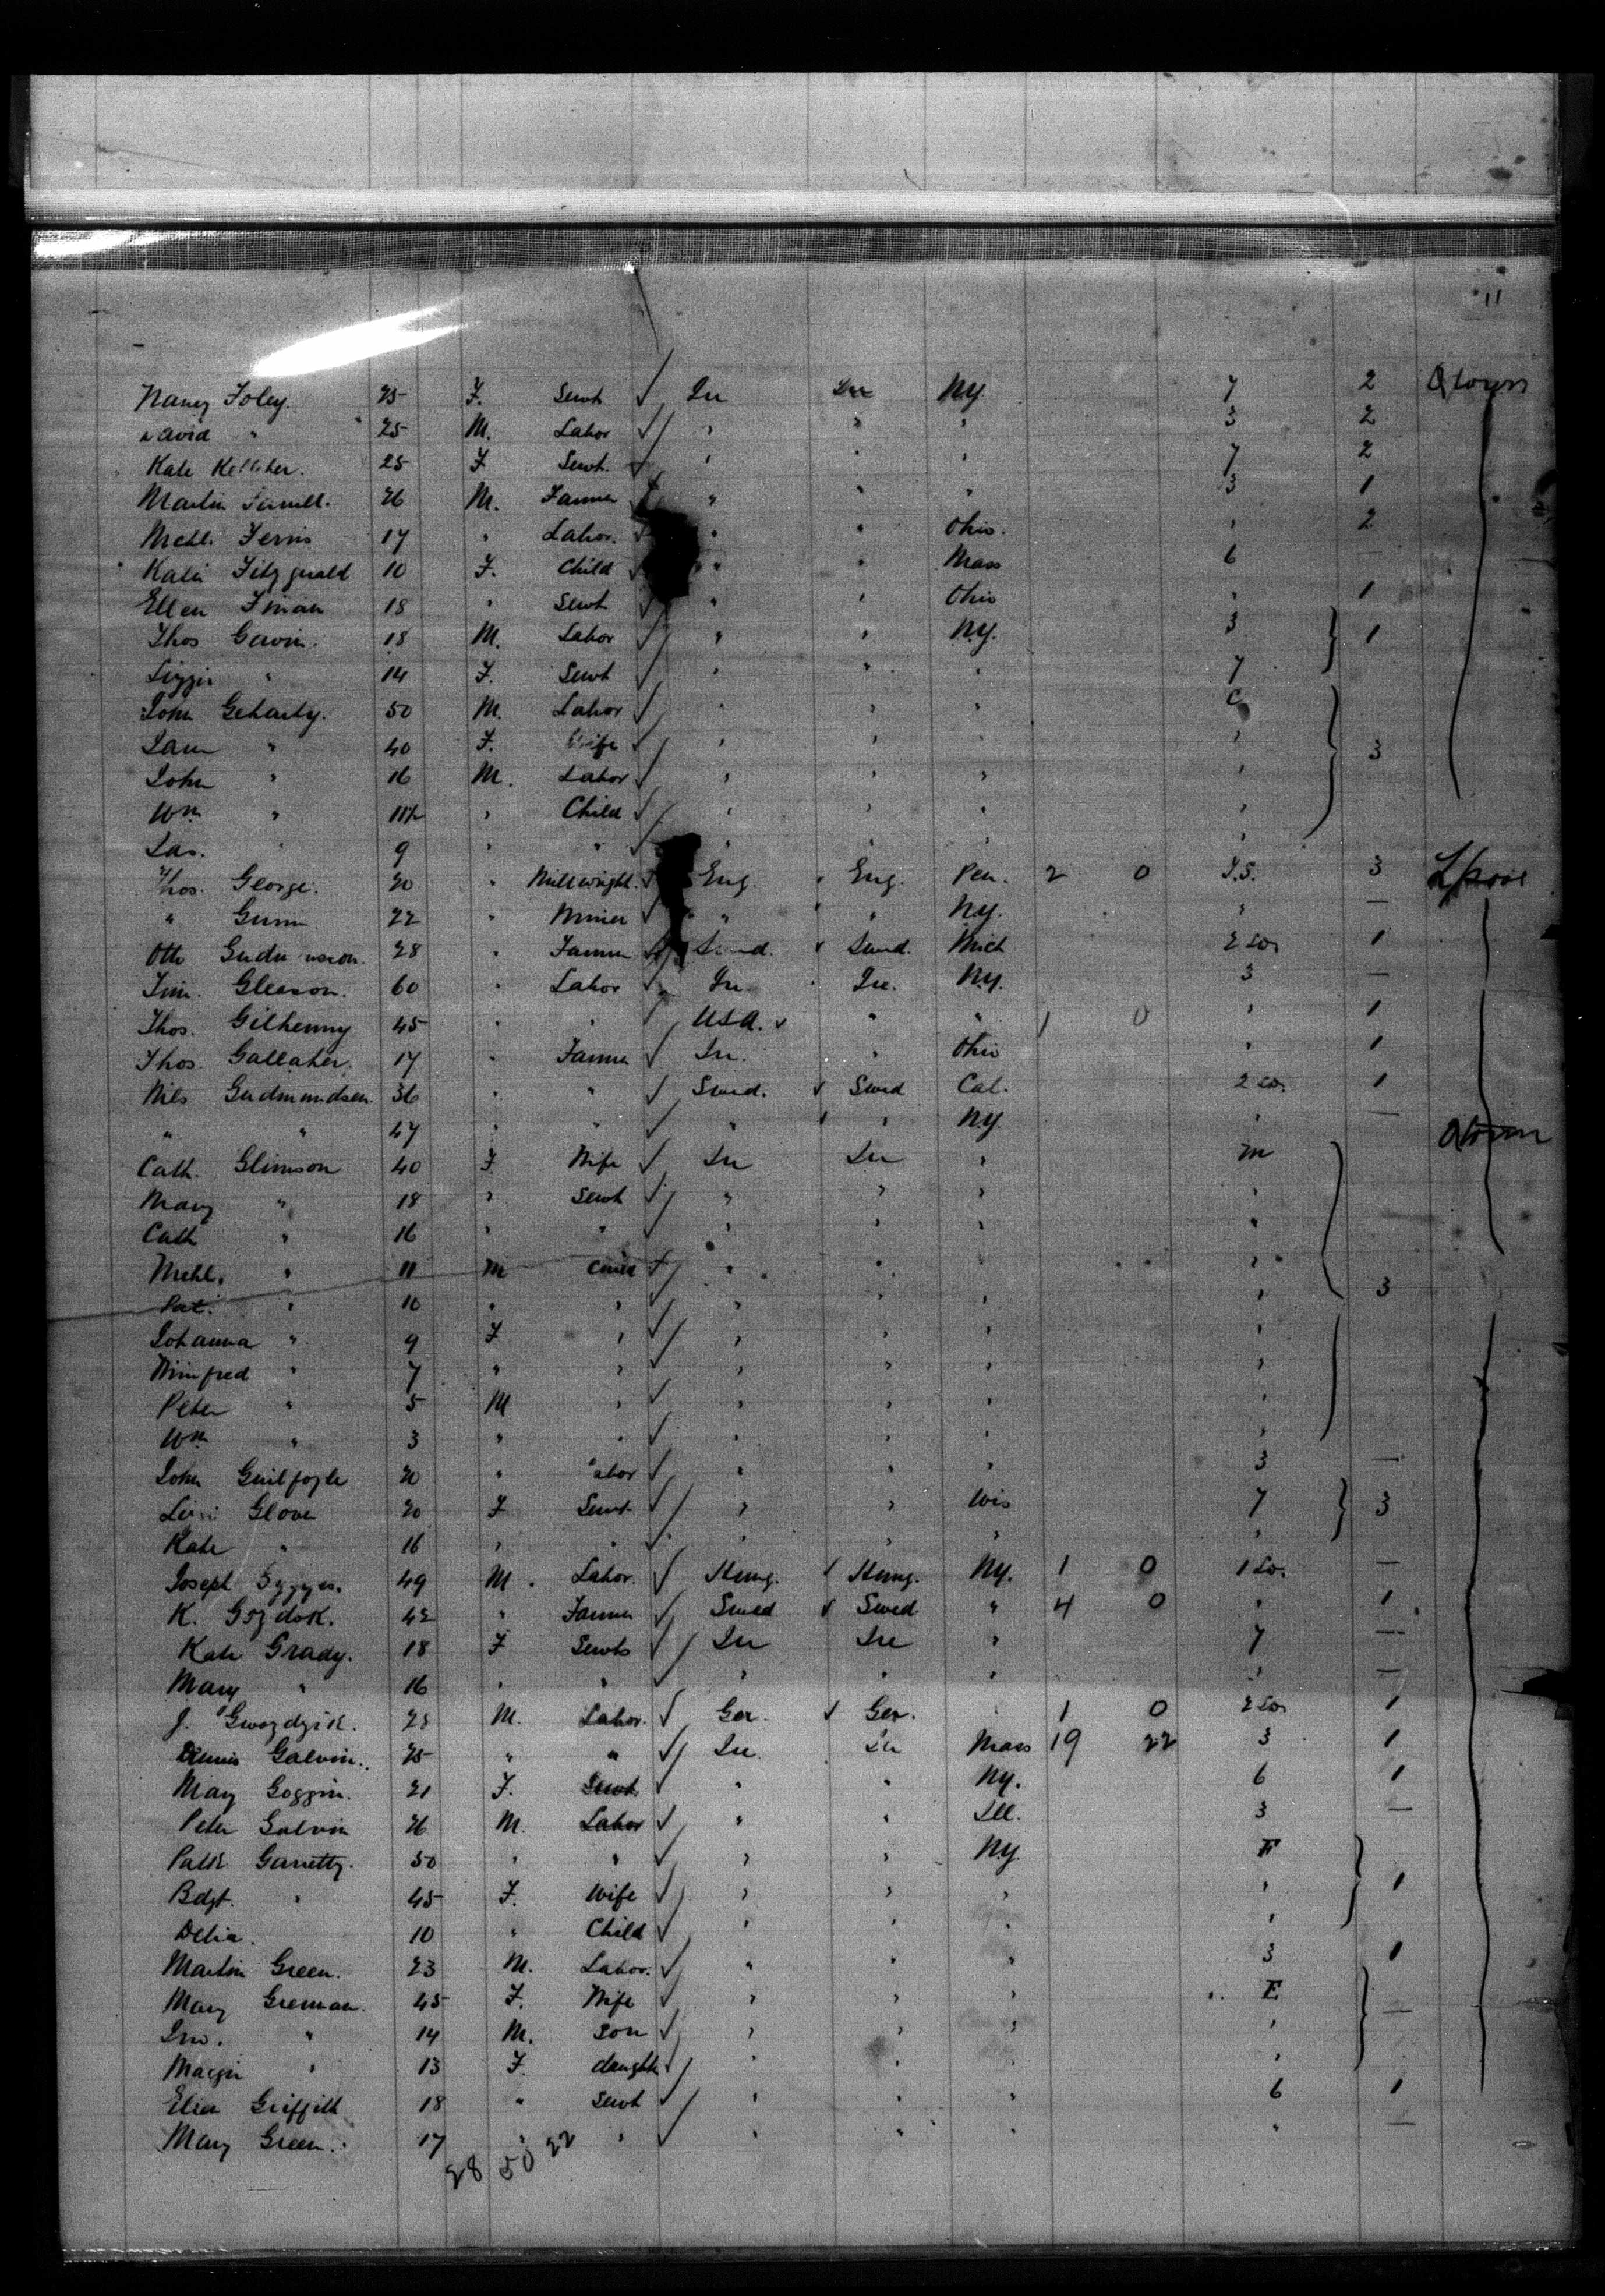 11
Nancy Foley. 25 F. Servt Ire Ire N.y. 7 2 Qtown
David " 25 M. Labor " " " 3 2
Kate Kelleher. 25 F Servt. " " " 7 2
Martin 26 M. Farmer " " " 3 1
Mchl. Ferris 17 " Labor. " " Ohio. " 2
Katie Fitzgerald 10 F. Child " " Mass 6
Ellen Finan 18 " Servt " " Ohio " 1
Thos Gavin. 18 M. Labor " " N.y. 3 1
Lizzie " 14 F. Servt " " " 7
John Geharty. 50 M. Labor " " " C
Jane " 40 F. Wife " " " " 3
John " 16 M. Labor " " " "
Wm " 11½ " Child " " " "
Jas. " 9 " " " " " "
Thos. George. 20 " Millwright. Eng. Eng. Pen. 2 0 F.S. 3 Lpool
" Gunn 22 " Miner " " N.y. " —
Otto 28 " Farmer Swed. Swed. Mich 2 Lo. 1
Jim. Gleason. 60 " Labor Ire Ire. N.y. 3 —
Thos. Gilhenny 45 " " USA. " " 1 0 " 1
Thos. Gallaher. 17 " Farmer Ire. " Ohio " 1
Nils Gudmundsen. 36 " " Swed. Swed Cal. 2 Lo. 1
" " 47 " " " " N.y. " — Qtown
Cath. Glimson 40 F. Wife Ire Ire " M
Mary " 18 " Servt " " " "
Cath " 16 " " " " " "
Mchl. " 11 M Child " " " "
Pat. " 10 " " " " " " 3
Johanna " 9 F " " " " "
Winifred " 7 " " " " " "
Peter " 5 M " " " " "
Wm " 3 " " " " " "
John Guilfoyle 20 " Labor " " " 3 —
Glove 20 F Servt. " " Wis 7 3
Kate " 16 " " " " " "
Joseph 49 M. Labor. Hung. Hung. N.y. 1 0 1 Lo. —
K. Gozdok. 42 " Farmer Swed Swed " 4 0 " 1
Kate Grady. 18 F Servts Ire Ire " 7 —
Mary " 16 " " " " " " —
J. Gwozdzik. 28 M. Labor. Ger. Ger. " 1 0 2 Lo. 1
Dennis Galvin. 25 " " Ire. Ire Mass 19 22 3 1
Mary Goggin. 21 F. Servt. " " N.y. 6 1
Peter Galvin 26 M. Labor " " Ill. 3 —
Patk Garretty. 50 " " " " N.y. F
Bdgt. " 45 F. Wife " " " " 1
Delia. 10 " Child " " " "
Martin Green. 23 M. Labor. " " " 3 1
Mary Greman. 45 F. Wife " " " E
Jno. " 14 M. Son " " " " —
Maggie " 13 F. daughtr " " "
Eliza Griffith 18 " Servt " " " 6 1
Mary Green. 17 " " " " " " —
28 50 22